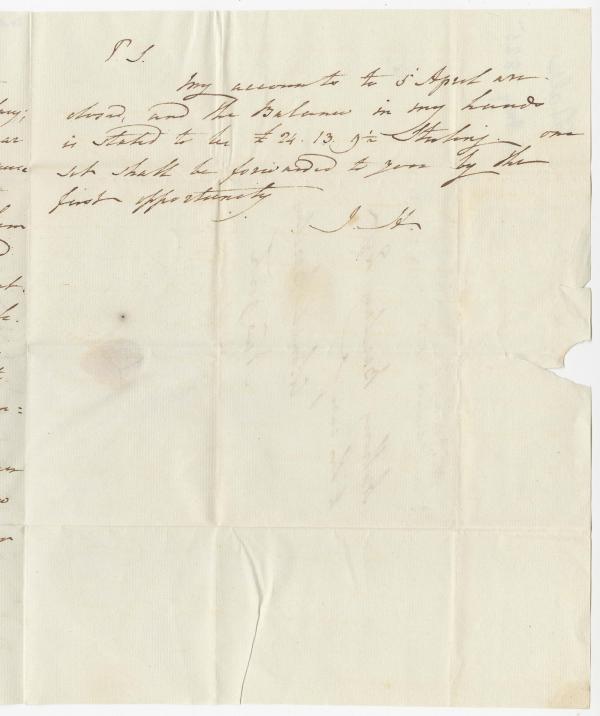 P S.
My accounts to 5 April are
closed, and the Balance in my hands
is stated to be £ 24. 13. 9½ Sterling. one
set shall be forwarded to you by the
first opportunity
J. H.